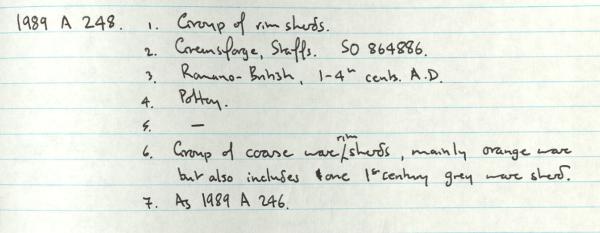 1989 A 248. 1. Group of rim sherds.
2. Greensforge, Staffs. SO 864886.
3. Romano-British, 1-4th cents. A.D.
4. Pottery.
5. —
6. Group of coarse ware rim sherds, mainly orange ware
but also includes one 1st century grey ware sherd.
7. As 1989 A 246.